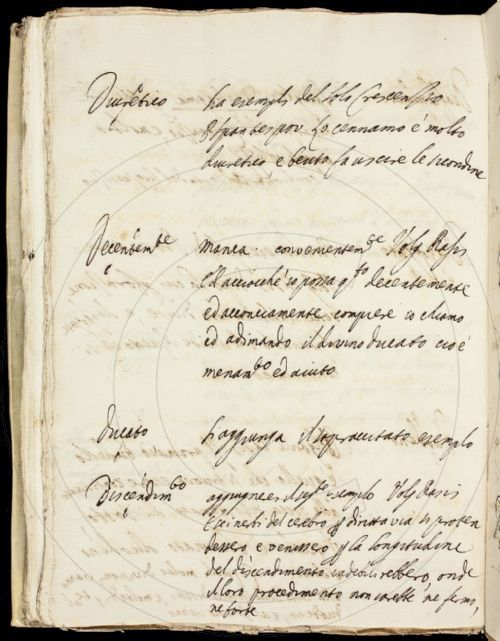 Diuretico ha esempli del solo Crescenzio
lo cennamo è molto
diuretico e beuto fa uscire le secondine
Decentem.te manca. convenientem.te Volg Rasis
Ed acciocchè io possa q.to decentemente
ed acconciamente compiere io chiamo
ed adimando il divino ducato cioè
menam.to ed aiuto
Ducato s'aggiunga il sopraccitato esempio
Discendim.to aggiungnesi il seg.te esempio Volg Rasis
E se i nerbi del celebro p diritta via si proten
dessero e venissero p la longitudine
del discendimento indebilirebbero, onde
il loro procedimento non sarebbe ne fermo,
ne forte